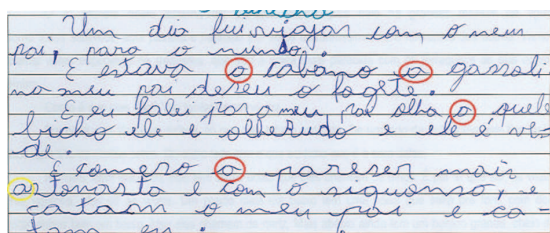 Um dia fui viajar com o meu
pai, para o mundo.
E estava o cabano a gassoli
na meu pai deseu o fogete.
E eu falei para meu pai olha o quele
bicho ele e olherudo e ele é ve-
de.
E comeso a pareser mais
astonasta e com o siguonso, e
catam o meu pai e ca-
tam eu.